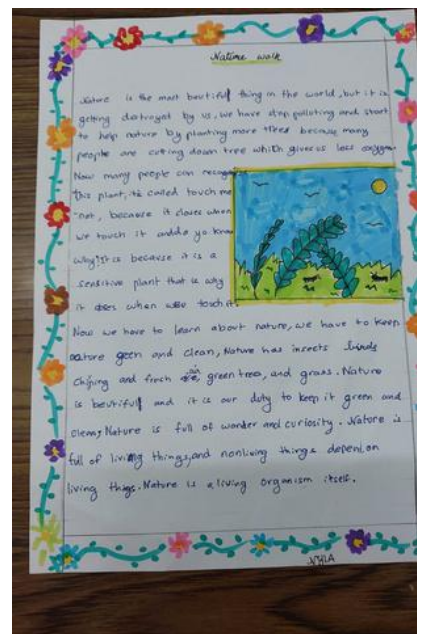 Nature walk
Nature is the most beutiful thing in the world, but it is
getting distroyed by us, we have stop polluting and start
to help nature by planting more trees because many
people are cuting down tree which gives us less oxygen
Now many people can recognise
this plant, its called touch me
not, because it closes when
we touch it and do yo know
why? It is because it is a
sensitive plant that is why
it closes when we touch it.
Now we have to learn about nature, we have to keep
nature geen and clean, Nature has insects birds
chiping and fresh air, green tree, and grass. Nature
is beutiful and it is our duty to keep it green and
clean, Nature is full of wonder and curiosity. Nature is
full of living things, and nonliving things depend on
living things. Nature is a living organism itself.